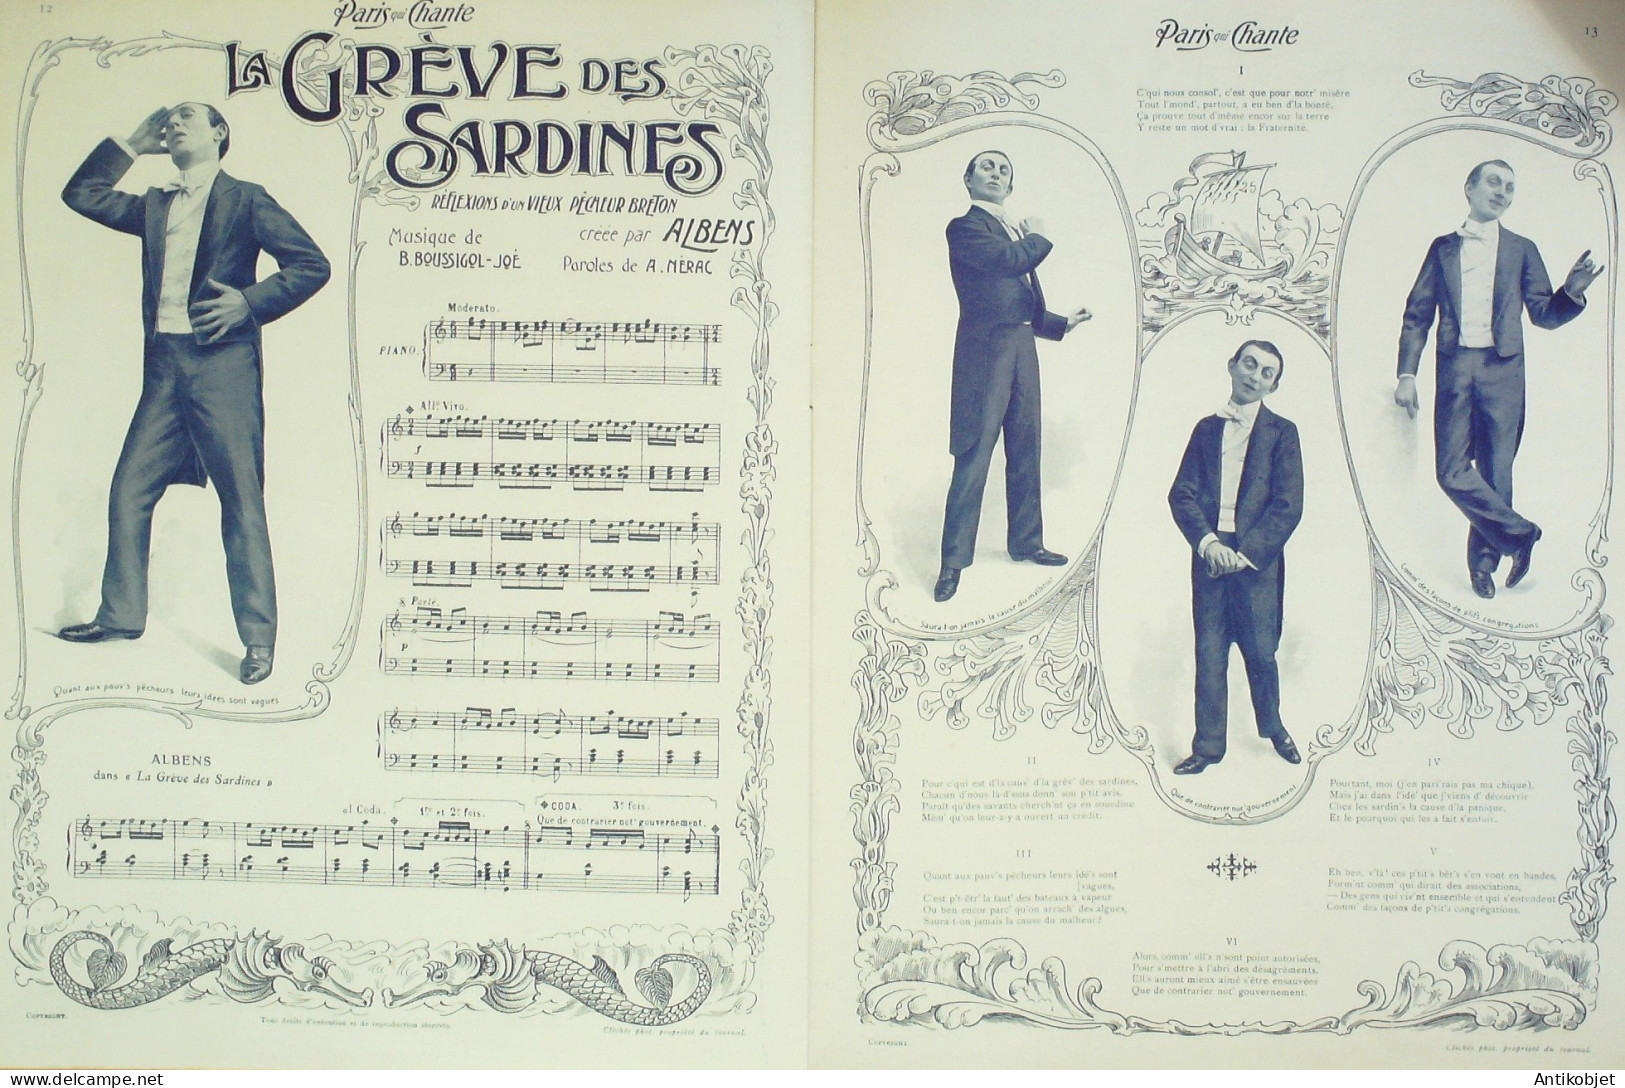 12
Paris qui Chante
LA GRÈVE DES
SARDINES
RÉFLEXIONS D'UN VIEUX PÊCHEUR BRETON
Musique de
B. BOUSSIGOL-JOÉ
créée par ALBENS
Paroles de A. NÉRAC
Moderato.
PIANO.
All.º Vivo.
f
8 Parlé.
P
Quant aux pauv's pêcheurs leurs idées sont vagues
ALBENS
dans « La Grève des Sardines »
al Coda.
1re et 2e fois.
CODA. 3e fois.
Que de contrarier not' gouvernement.
COPYRIGHT.
Tous droits d'exécution et de reproduction réservés.
Clichés phot. propriété du journal.
Paris qui Chante
13
I
C'qui nous consol', c'est que pour notr' misère
Tout l'mond', partout, a eu ben d'la bonté,
Ça prouve tout d'même encor sur la terre
Y reste un mot d'vrai : la Fraternité.
25
Saura-t-on jamais la cause du malheur
Comm' des façons de p'tit's congrégations
Que de contrarier not' gouvernement
II
Pour c'qui est d'la caus' d'la grèv' des sardines,
Chacun d'nous là-d'ssus donn' son p'tit avis,
Paraît qu'des savants cherch'nt ça en sourdine
Mêm' qu'on leur-z-y a ouvert un crédit.
III
Quant aux pauv's pêcheurs leurs idé's sont
[vagues,
C'est p't-êtr' la faut' des bateaux à vapeur
Ou ben encor parc' qu'on arrach' des algues,
Saura-t-on jamais la cause du malheur?
IV
Pourtant, moi (j'en pari'rais pas ma chique),
Mais j'ai dans l'idé' que j'viens d' découvrir
Chez les sardin's la cause d'la panique,
Et le pourquoi qui les a fait s'enfuir.
V
Eh ben, v'là! ces p'tit's bêt's s'en vont en bandes,
Form'nt comm' qui dirait des associations,
— Des gens qui vie'nt ensemble et qui s'entendent
Comm' des façons de p'tit's congrégations.
VI
Alors, comm' ell's n'sont point autorisées,
Pour s'mettre à l'abri des désagréments,
Ell's auront mieux aimé s'être ensauvées
Que de contrarier not' gouvernement.
COPYRIGHT
Clichés phot. propriété du journal.
Antikobjet